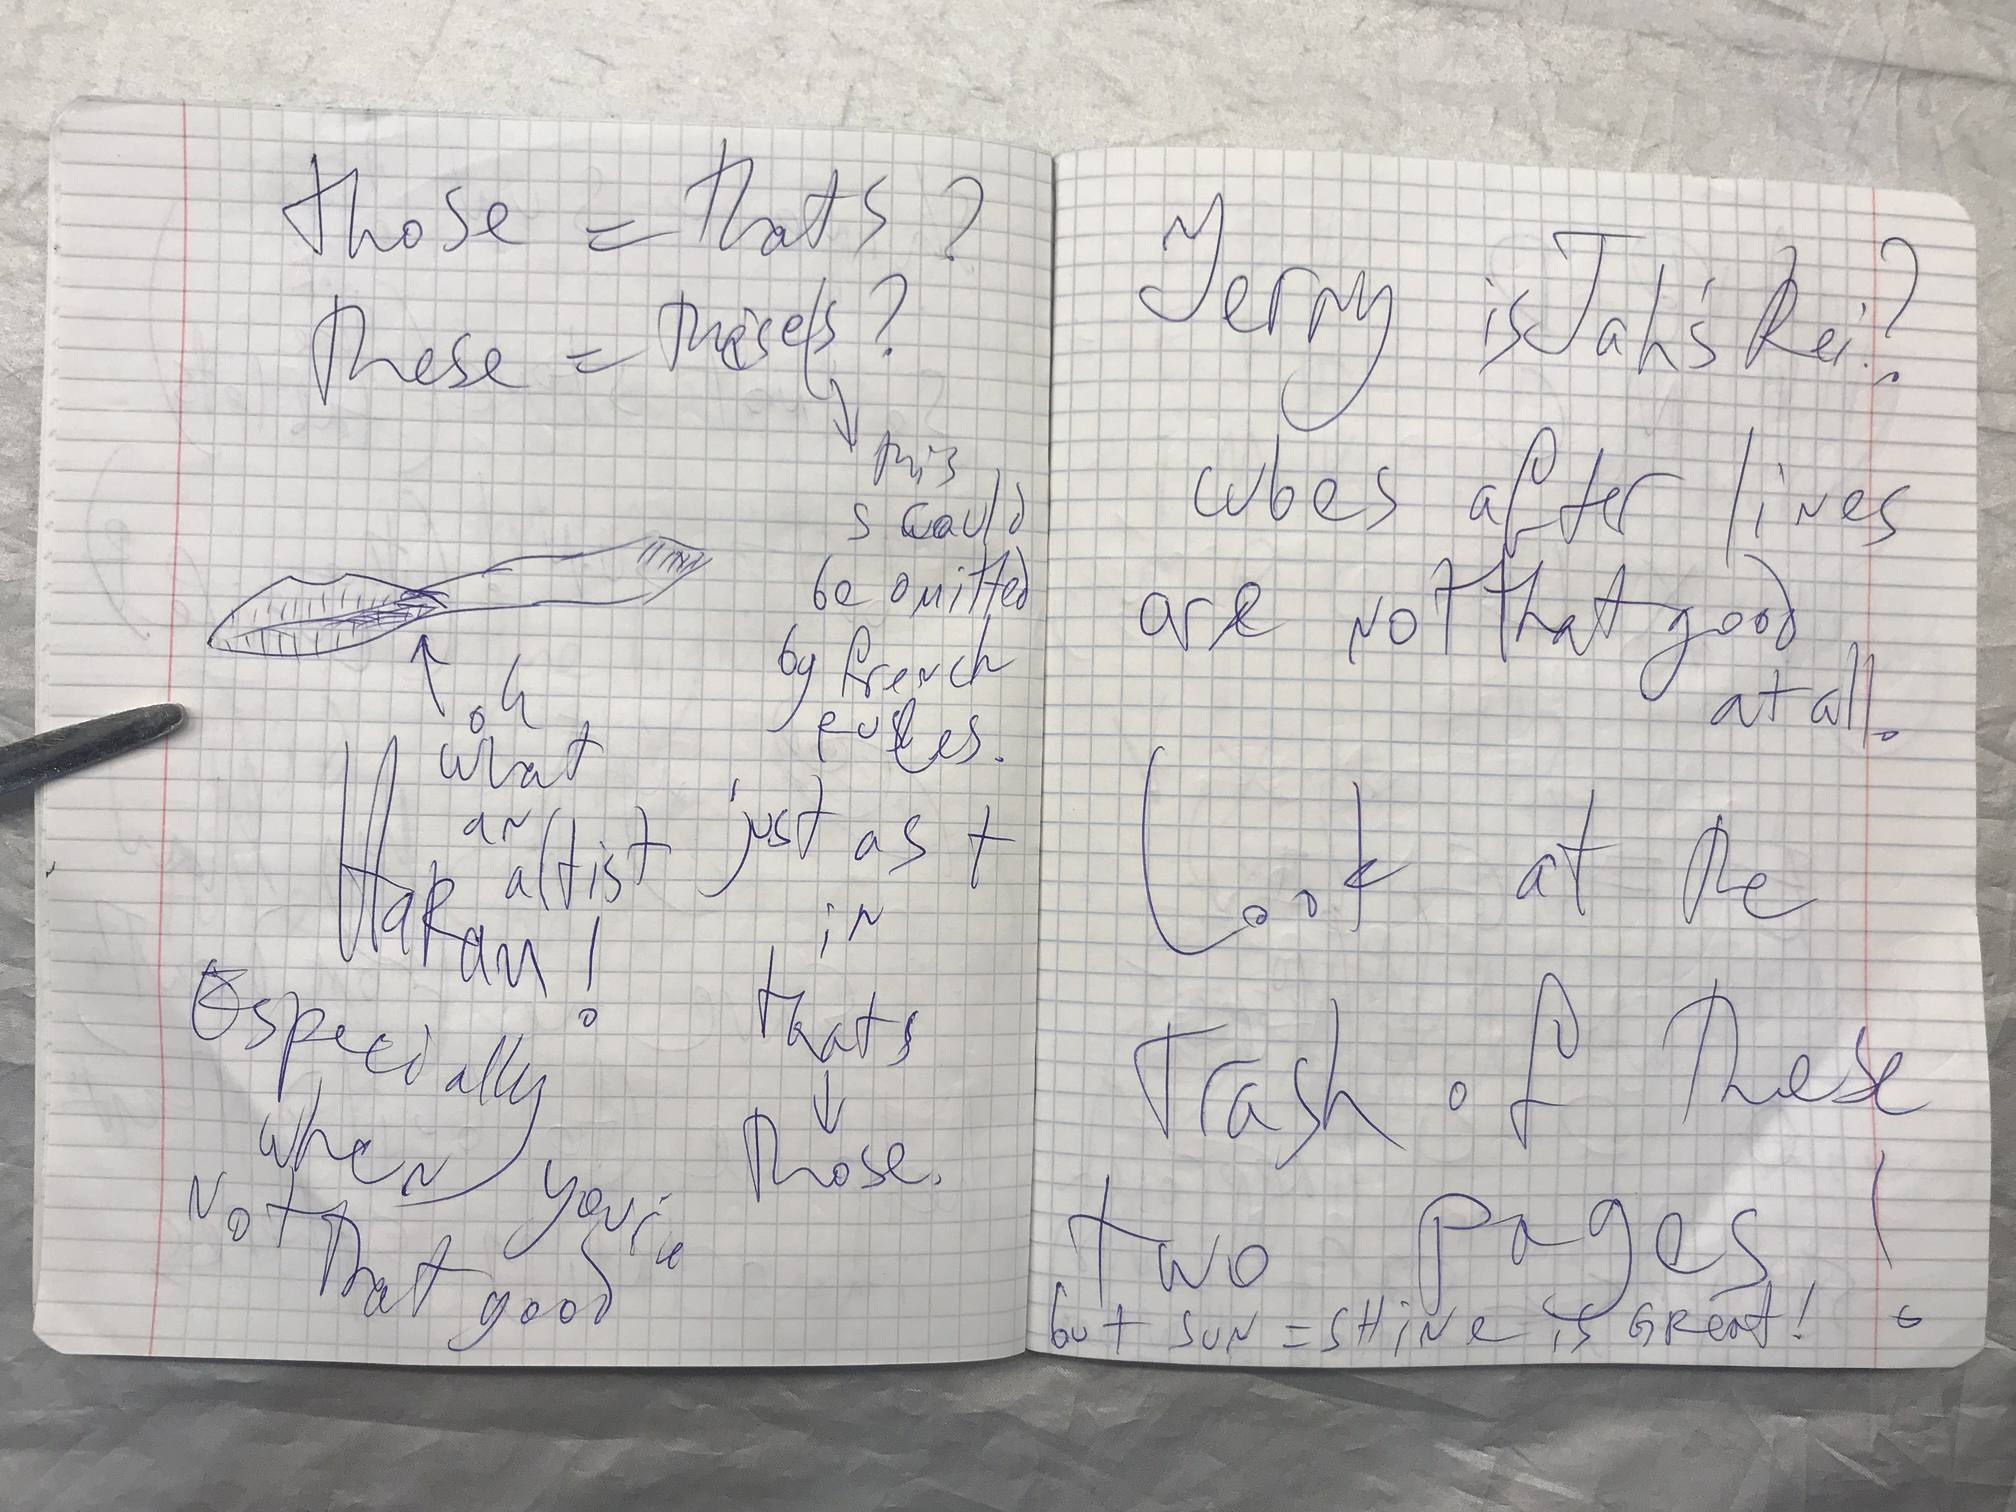 those = thats ?
these = thises ?
this
s would
be omitted
by french
rules.
just as t
in
thats
↓
those.
oh
what
an
artist
Hakan!
Especially
when you're
not that good
Jerry is Jah's Rei?
cubes after lines
are not that good
at all.
Look at the
Trash of these
two pages !
but sun = sHiNe is GReat!